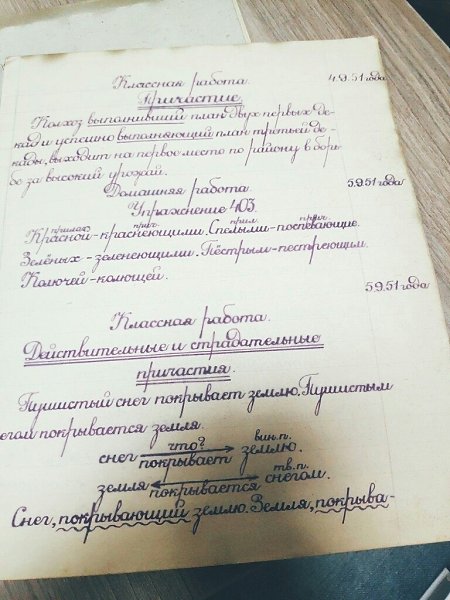 Классная работа. 4.9.51 года
Причастие.
Колхоз выполнивший план двух первых де-
кад и успешно выполняющий план третьей де-
кады, выходит на первое место по району в борь-
бе за высокий урожай.
Домашняя работа 5.9.51 года
Упражнение 403.
прилаг. прич. прил. прич.
Красной-краснеющими. Спелыми-поспевающие.
Зелёных-зеленеющими. Пёстрым-пестреющим.
Колючей-колющей.
5.9.51 года
Классная работа.
Действительные и страдательные
причастия.
Пушистый снег покрывает землю. Пушистым
снегом покрывается земля.
что? вин.п.
снег покрывает землю.
тв.п.
земля покрывается снегом.
Снег, покрывающий землю. Земля, покрыва-